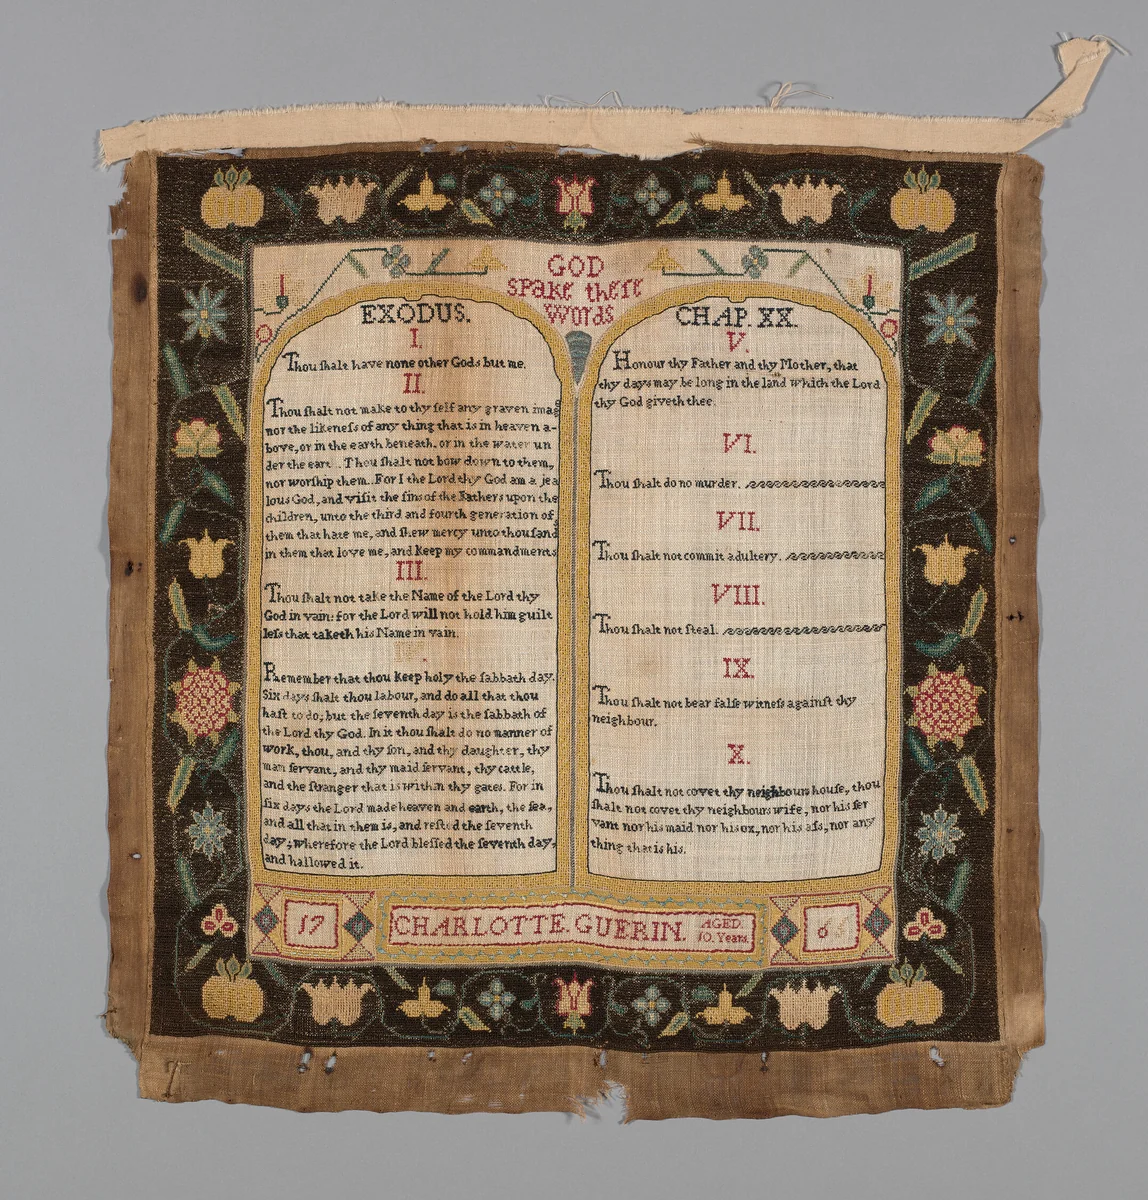 GOD
spake theſe
Words
EXODUS.
I.
Thou ſhalt have none other Gods but me.
II.
Thou ſhalt not make to thy ſelf any graven imag
nor the likeneſs of any thing that is in heaven a-
bove, or in the earth beneath. or in the water un
der the eart . Thou ſhalt not bow down to them,
nor worſhip them. For I the Lord thy God am a jea
lous God, and viſit the ſins of the Fathers upon the
children, unto the third and fourth generation of
them that hate me, and ſhew mercy unto thouſand
in them that love me, and keep my commandments
III.
Thou ſhalt not take the Name of the Lord thy
God in vain: for the Lord will not hold him guilt
leſs that taketh his Name in vain.
Remember that thou keep holy the ſabbath day.
Six days ſhalt thou labour, and do all that thou
haſt to do; but the ſeventh day is the ſabbath of
the Lord thy God. In it thou ſhalt do no manner of
work, thou, and thy ſon, and thy daughter, thy
man ſervant, and thy maid ſervant, thy cattle,
and the ſtranger that is within thy gates. For in
ſix days the Lord made heaven and earth, the ſea,
and all that in them is, and reſted the ſeventh
day; wherefore the Lord bleſſed the ſeventh day,
and hallowed it.
CHAP. XX.
V.
Honour thy Father and thy Mother, that
thy days may be long in the land which the Lord
thy God giveth thee.
VI.
Thou ſhalt do no murder.
VII.
Thou ſhalt not commit adultery.
VIII.
Thou ſhalt not ſteal.
IX.
Thou ſhalt not bear falſe witneſs againſt thy
neighbour.
X.
Thou ſhalt not covet thy neighbours houſe, thou
ſhalt not covet thy neighbours wife, nor his ſer
vant nor his maid nor his ox, nor his aſs, nor any
thing that is his.
17
CHARLOTTE. GUERIN.
AGED.
10. Years.